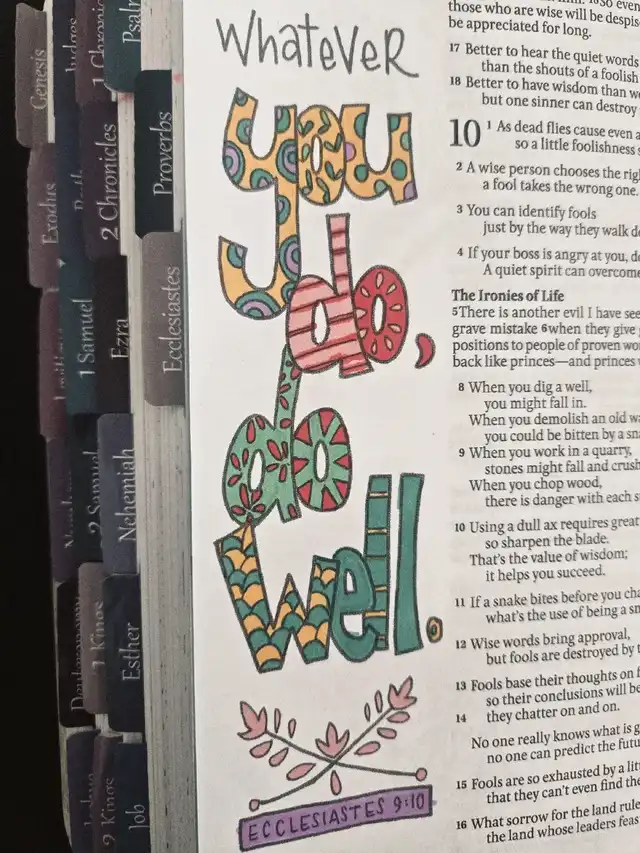 Genesis
Exodus
Judges
1 Samuel
2 Samuel
1 Kings
2 Kings
1 Chronic
2 Chronicles
Ezra
Nehemiah
Esther
Job
Psalr
Proverbs
Ecclesiastes
Whatever
you
do,
do
well.
ECCLESIASTES 9:10
those who are wise will be despis
be appreciated for long.
17 Better to hear the quiet words
than the shouts of a foolish
18 Better to have wisdom than we
but one sinner can destroy
10 1 As dead flies cause even a
so a little foolishness s
2 A wise person chooses the rig
a fool takes the wrong one.
3 You can identify fools
just by the way they walk do
4 If your boss is angry at you, do
A quiet spirit can overcome
The Ironies of Life
5There is another evil I have see
grave mistake 6when they give
positions to people of proven wo
back like princes—and princes
8 When you dig a well,
you might fall in.
When you demolish an old wa
you could be bitten by a sna
9 When you work in a quarry,
stones might fall and crush
When you chop wood,
there is danger with each s
10 Using a dull ax requires great
so sharpen the blade.
That's the value of wisdom;
it helps you succeed.
11 If a snake bites before you cha
what's the use of being a sn
12 Wise words bring approval,
but fools are destroyed by t
13 Fools base their thoughts on f
so their conclusions will be
14 they chatter on and on.
No one really knows what is g
no one can predict the futu
15 Fools are so exhausted by a litt
that they can't even find the
16 What sorrow for the land rule
the land whose leaders feas